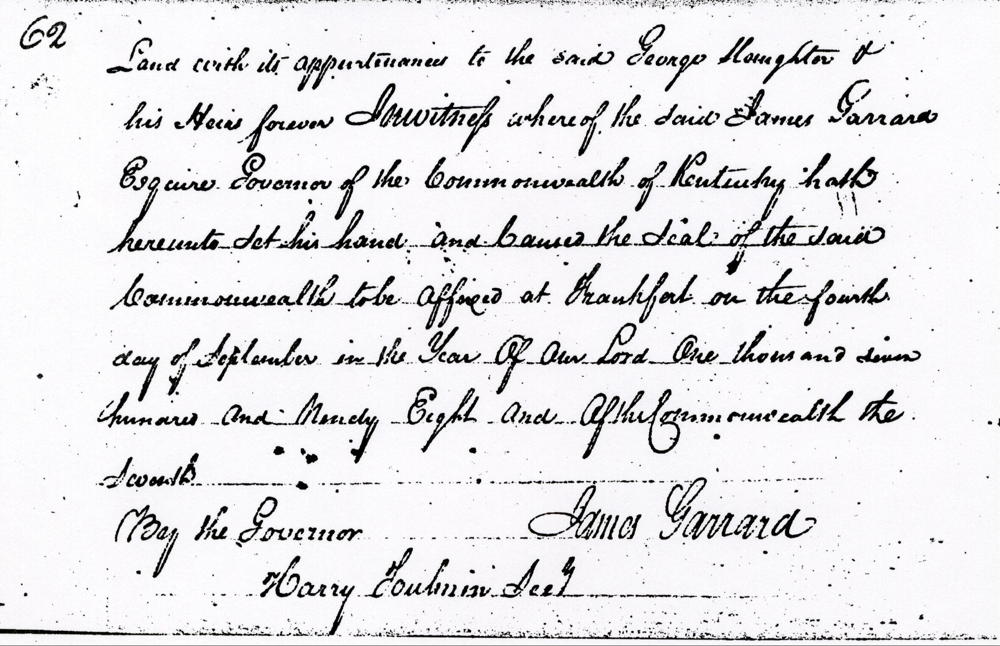 62
Land with its appurtinances to the said George Slaughter &
his Heirs forever Inwitness whereof the said James Garrard
Esquire Governor of the Commonwealth of Kentucky hath
hereunto set his hand and Caused the Seal of the said
Commonwealth tobe affixed at Frankfort on the fourth
day of September in the Year Of Our Lord One thousand seven
hundred and Ninety Eight and Ofthe Commonwealth the
Seventh
By the Governor James Garrard
Harry Toulmin Secy